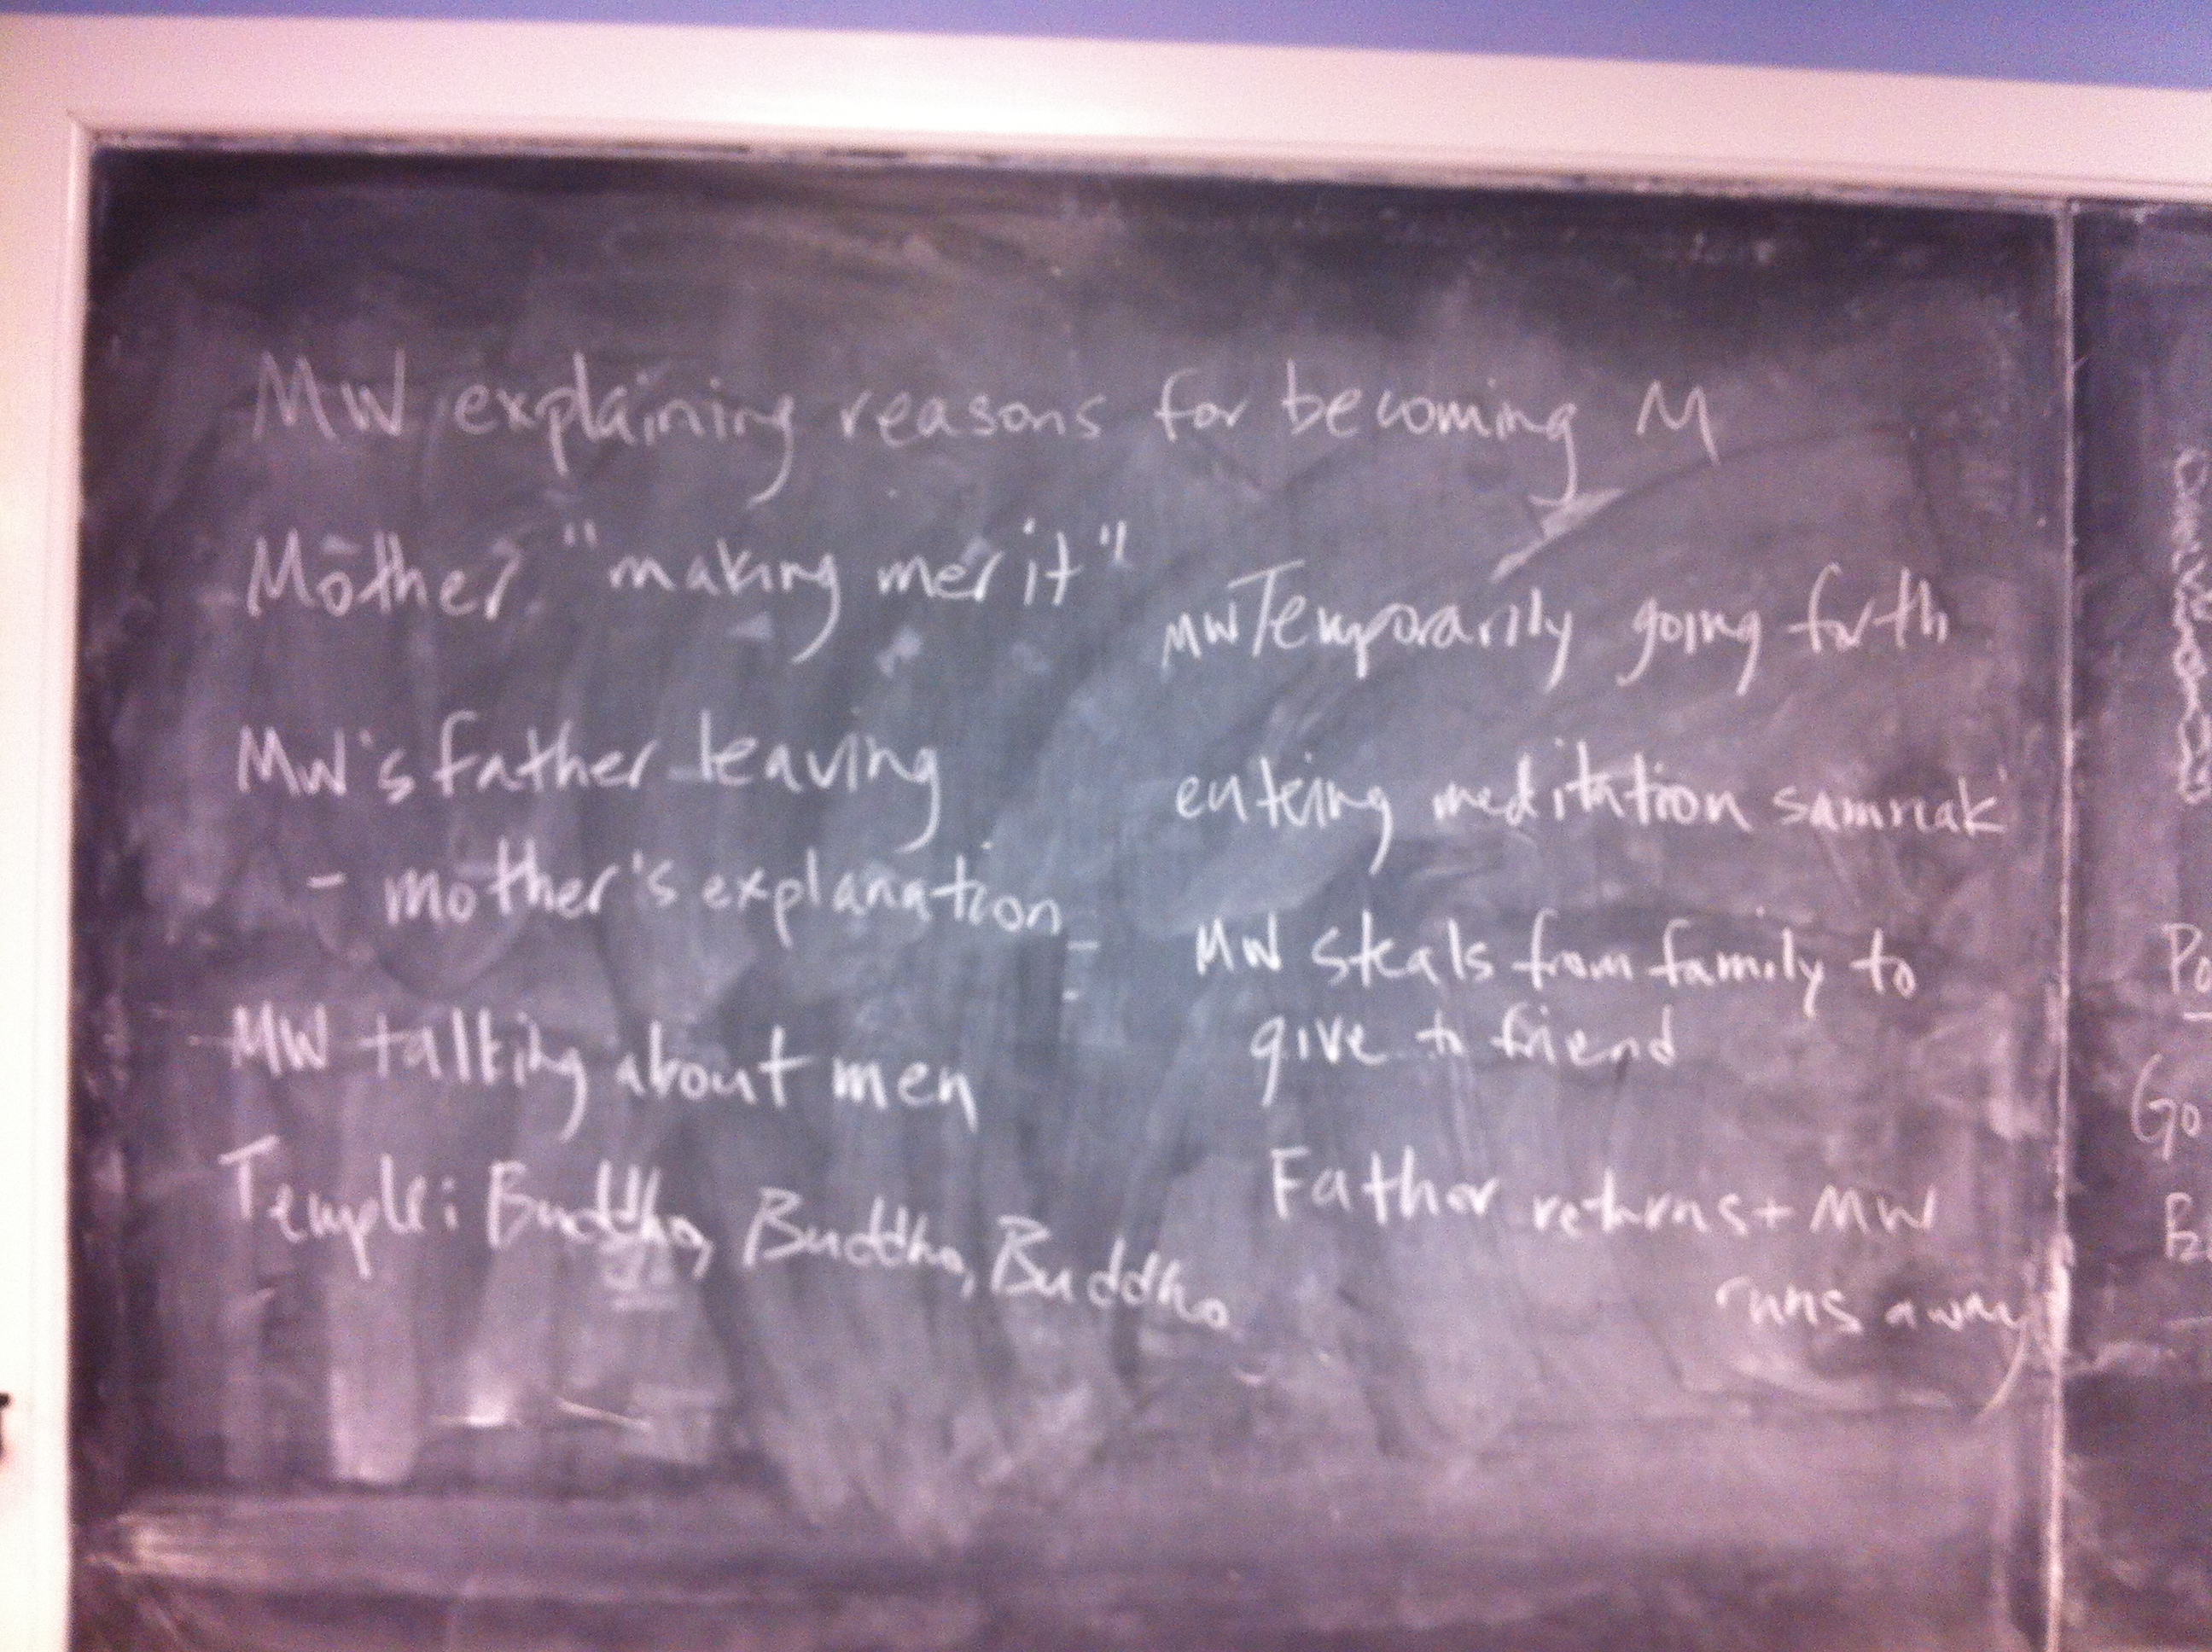 MW explaining reasons for becoming M
Mother "making merit"
MW's father leaving
- mother's explanation -
MW talking about men
Temple: Buddho, Buddho, Buddho
MW Temporarily going forth
entering meditation samnak
MW steals from family to
give to friend
Father returns + MW
runs away
Po
Go